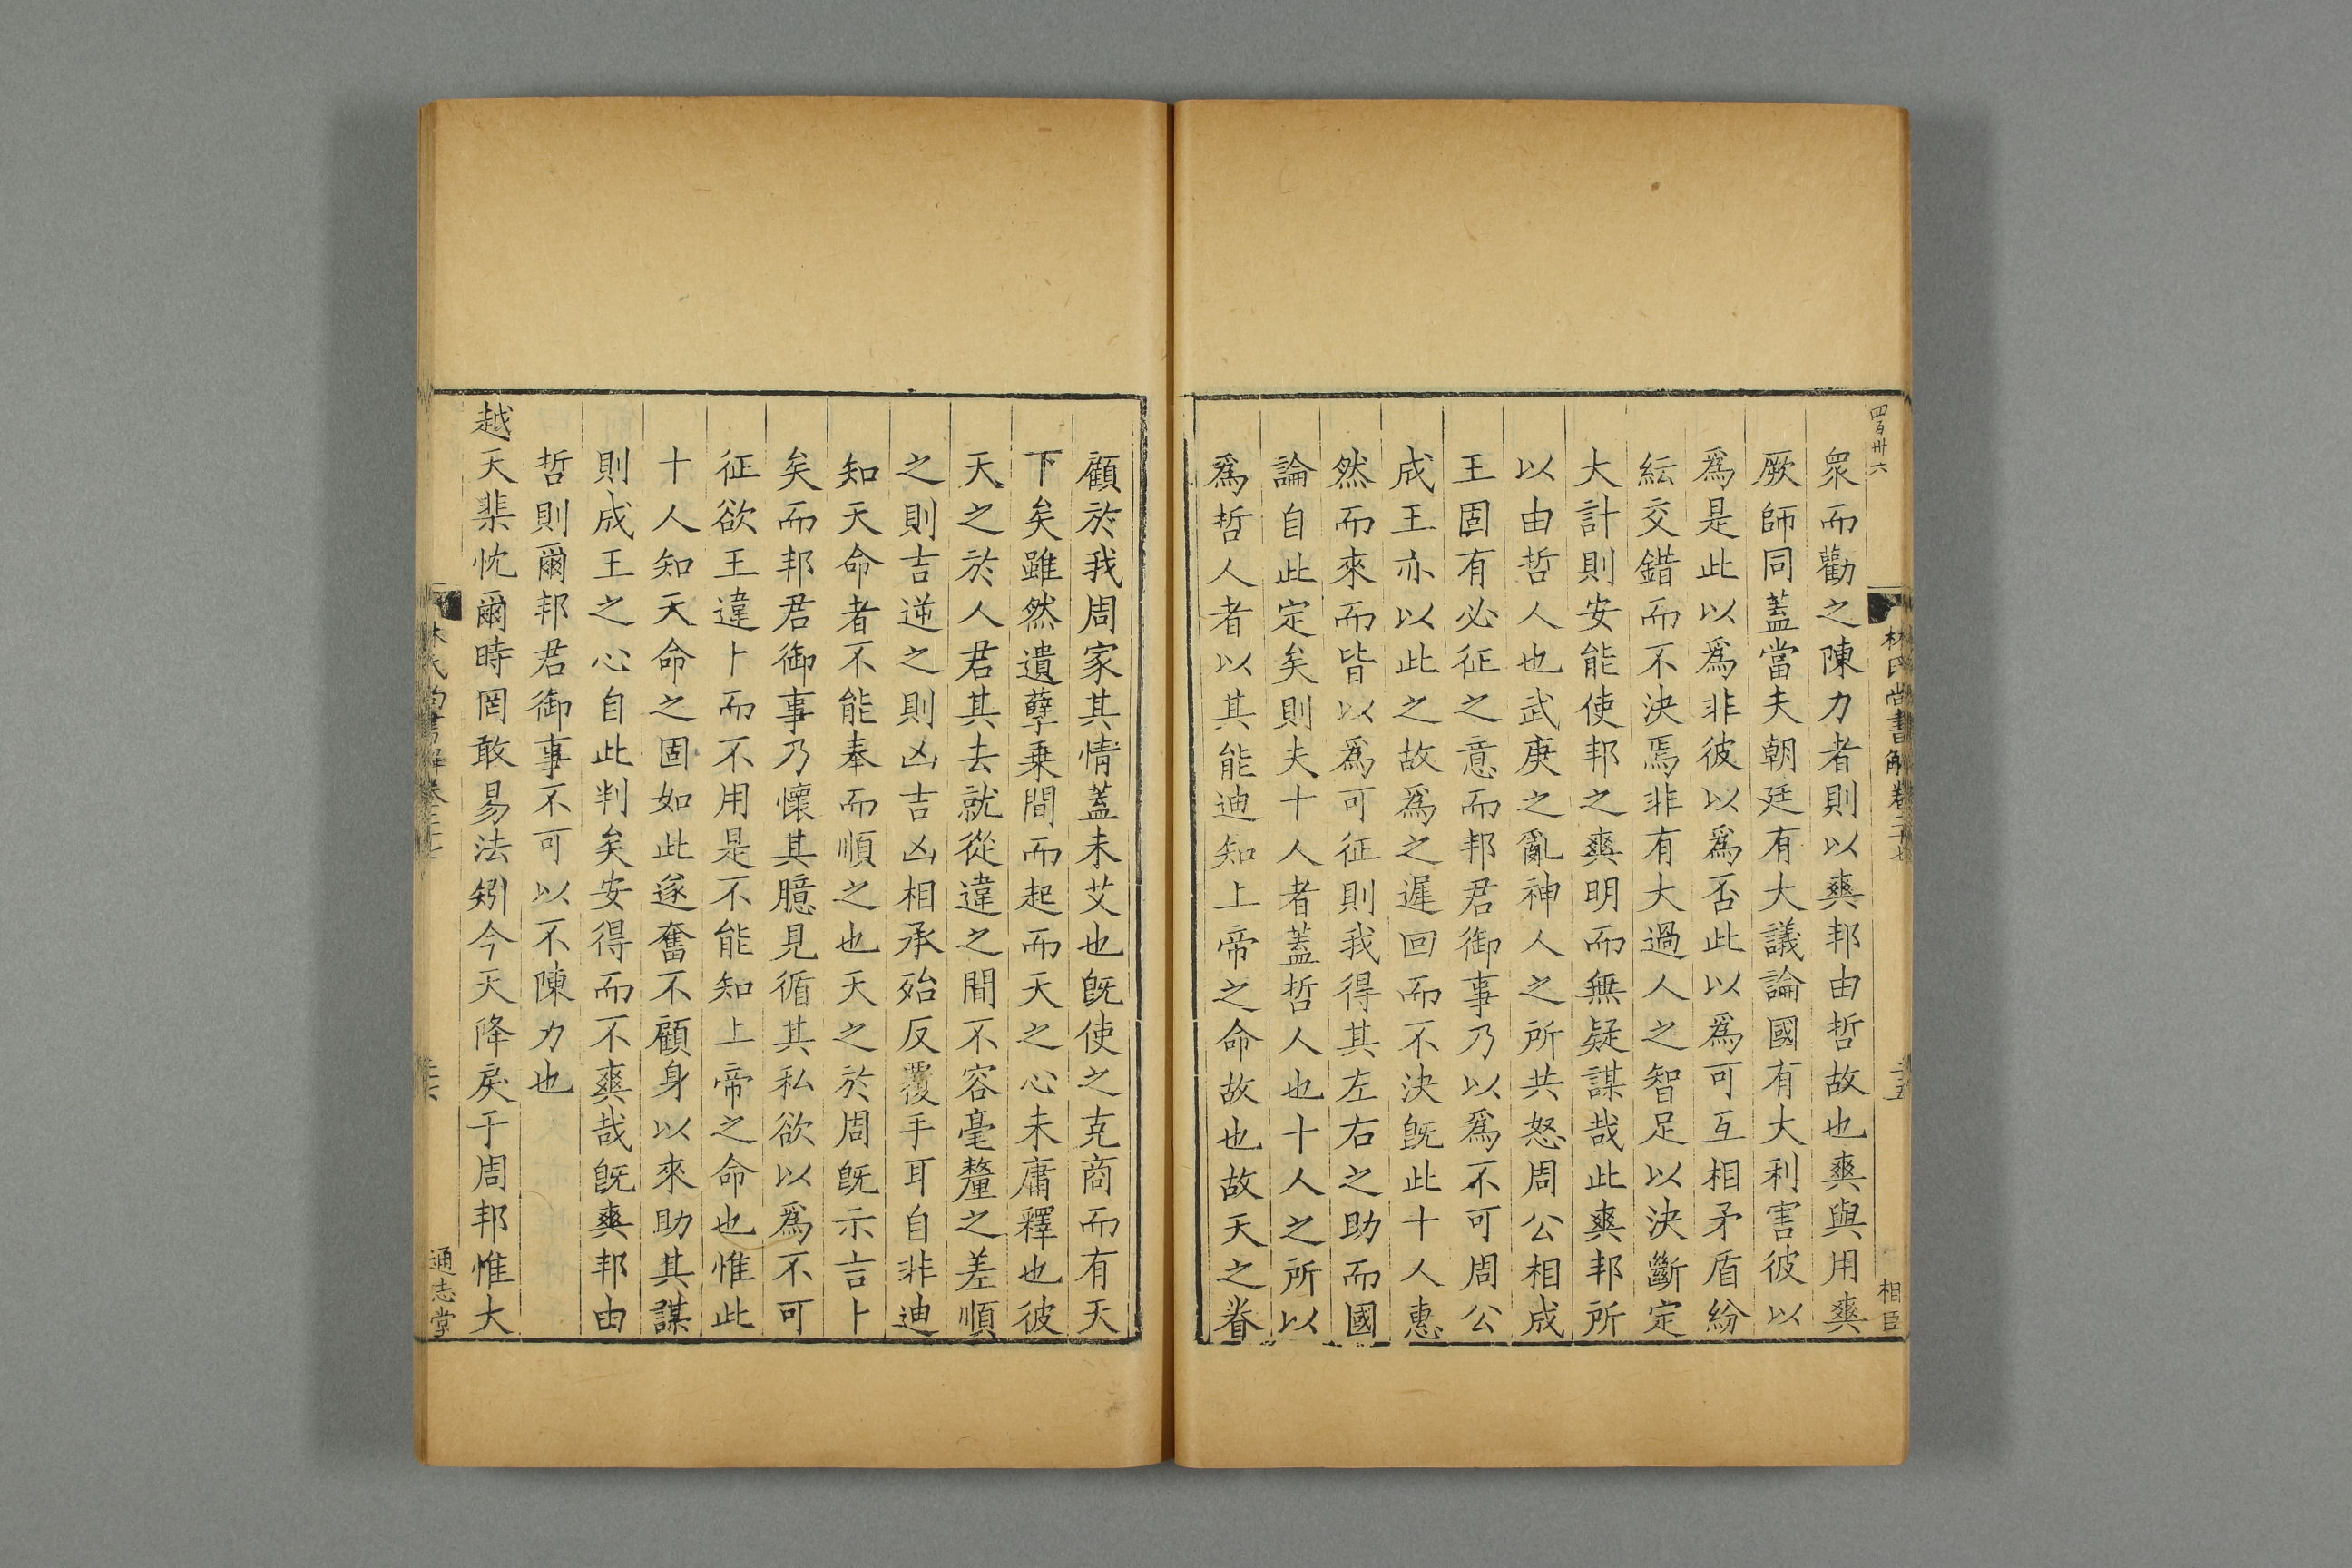 四百卅六
林氏尚書解卷二十七
二十五
相臣
衆而勸之陳力者則以爽邦由哲故也爽與用爽
厥師同蓋當夫朝廷有大議論國有大利害彼以
爲是此以爲非彼以爲否此以爲可互相矛盾紛
紜交錯而不決焉非有大過人之智足以決斷定
大計則安能使邦之爽明而無疑謀哉此爽邦所
以由哲人也武庚之亂神人之所共怒周公相成
王固有必征之意而邦君御事乃以爲不可周公
成王亦以此之故爲之遲回而不決旣此十人惠
然而來而皆以爲可征則我得其左右之助而國
論自此定矣則夫十人者蓋哲人也十人之所以
爲哲人者以其能迪知上帝之命故也故天之眷
顧於我周家其情蓋未艾也旣使之克商而有天
下矣雖然遺孽乗間而起而天之心未庸釋也彼
天之於人君其去就從違之間不容毫釐之差順
之則吉逆之則凶吉凶相承殆反覆手耳自非迪
知天命者不能奉而順之也天之於周旣示吉卜
矣而邦君御事乃懷其臆見循其私欲以爲不可
征欲王違卜而不用是不能知上帝之命也惟此
十人知天命之固如此遂奮不顧身以來助其謀
則成王之心自此判矣安得而不爽哉旣爽邦由
哲則爾邦君御事不可以不陳力也
越天棐忱爾時罔敢易法矧今天降戾于周邦惟大
通志堂